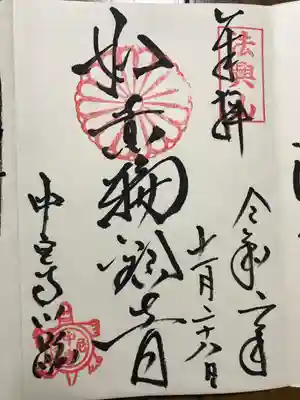 法興山
奉拝
令和二年
十一月二十八日
如意輪観音
中宮寺門跡